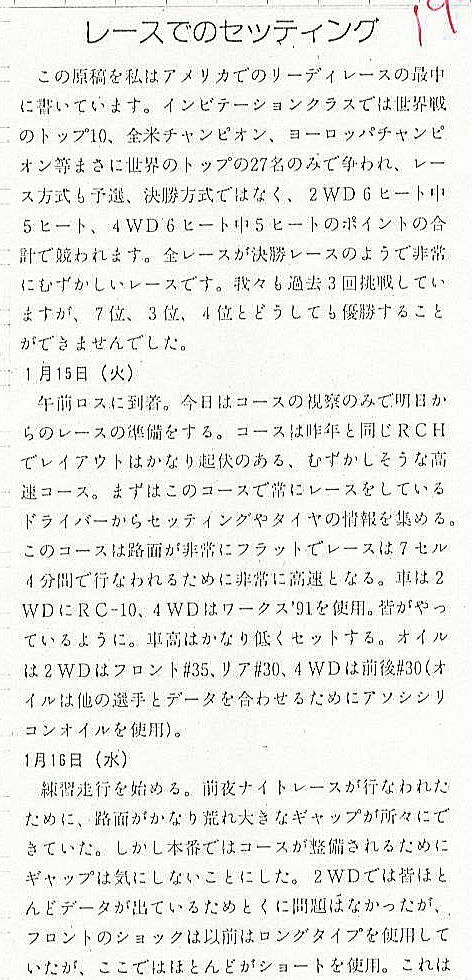 19
レースでのセッティング
この原稿を私はアメリカでのリーディレースの最中
に書いています。インビテーションクラスでは世界戦
のトップ10、全米チャンピオン、ヨーロッパチャンピ
オン等まさに世界のトップの27名のみで争われ、レー
ス方式も予選、決勝方式ではなく、２ＷＤ６ヒート中
５ヒート、４ＷＤ６ヒート中５ヒートのポイントの合
計で競われます。全レースが決勝レースのようで非常
にむずかしいレースです。我々も過去３回挑戦してい
ますが、７位、３位、４位とどうしても優勝すること
ができませんでした。
１月15日（火）
午前ロスに到着。今日はコースの視察のみで明日か
らのレースの準備をする。コースは昨年と同じＲＣＨ
でレイアウトはかなり起伏のある、むずかしそうな高
速コース。まずはこのコースで常にレースをしている
ドライバーからセッティングやタイヤの情報を集める。
このコースは路面が非常にフラットでレースは７セル
４分間で行なわれるために非常に高速となる。車は２
ＷＤにＲＣ-10、４ＷＤはワークス'91を使用。皆がやっ
ているように。車高はかなり低くセットする。オイル
は２ＷＤはフロント#35、リア#30、４ＷＤは前後#30（オ
イルは他の選手とデータを合わせるためにアソシシリ
コンオイルを使用）。
１月16日（水）
練習走行を始める。前夜ナイトレースが行なわれた
ために、路面がかなり荒れ大きなギャップが所々にで
きていた。しかし本番ではコースが整備されるために
ギャップは気にしないことにした。２ＷＤでは皆ほと
んどデータが出ているためとくに問題はなかったが、
フロントのショックは以前はロングタイプを使用して
いたが、ここではほとんどがショートを使用。これは